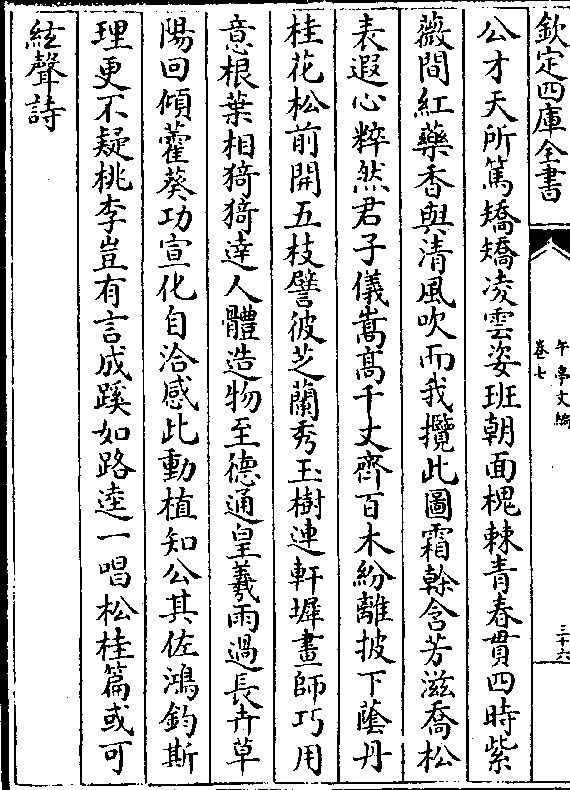 欽定四庫全書
午亭文編
卷七
三十六
公才天所篤矯矯凌雲姿班朝面槐棘青春貫四時紫
薇間紅藥香與清風吹而我攬此圖霜榦含芳滋喬松
表遐心粹然君子儀嵩高千丈齊百木紛離披下蔭丹
桂花松前開五枝譬彼芝蘭秀玉樹連軒墀畫師巧用
意根葉相猗猗達人體造物至德通皇羲雨過長卉草
陽回傾藿葵功宣化自洽感此動植知公其佐鴻鈞斯
理更不疑桃李豈有言成蹊如路逵一唱松桂篇或可
絃聲詩